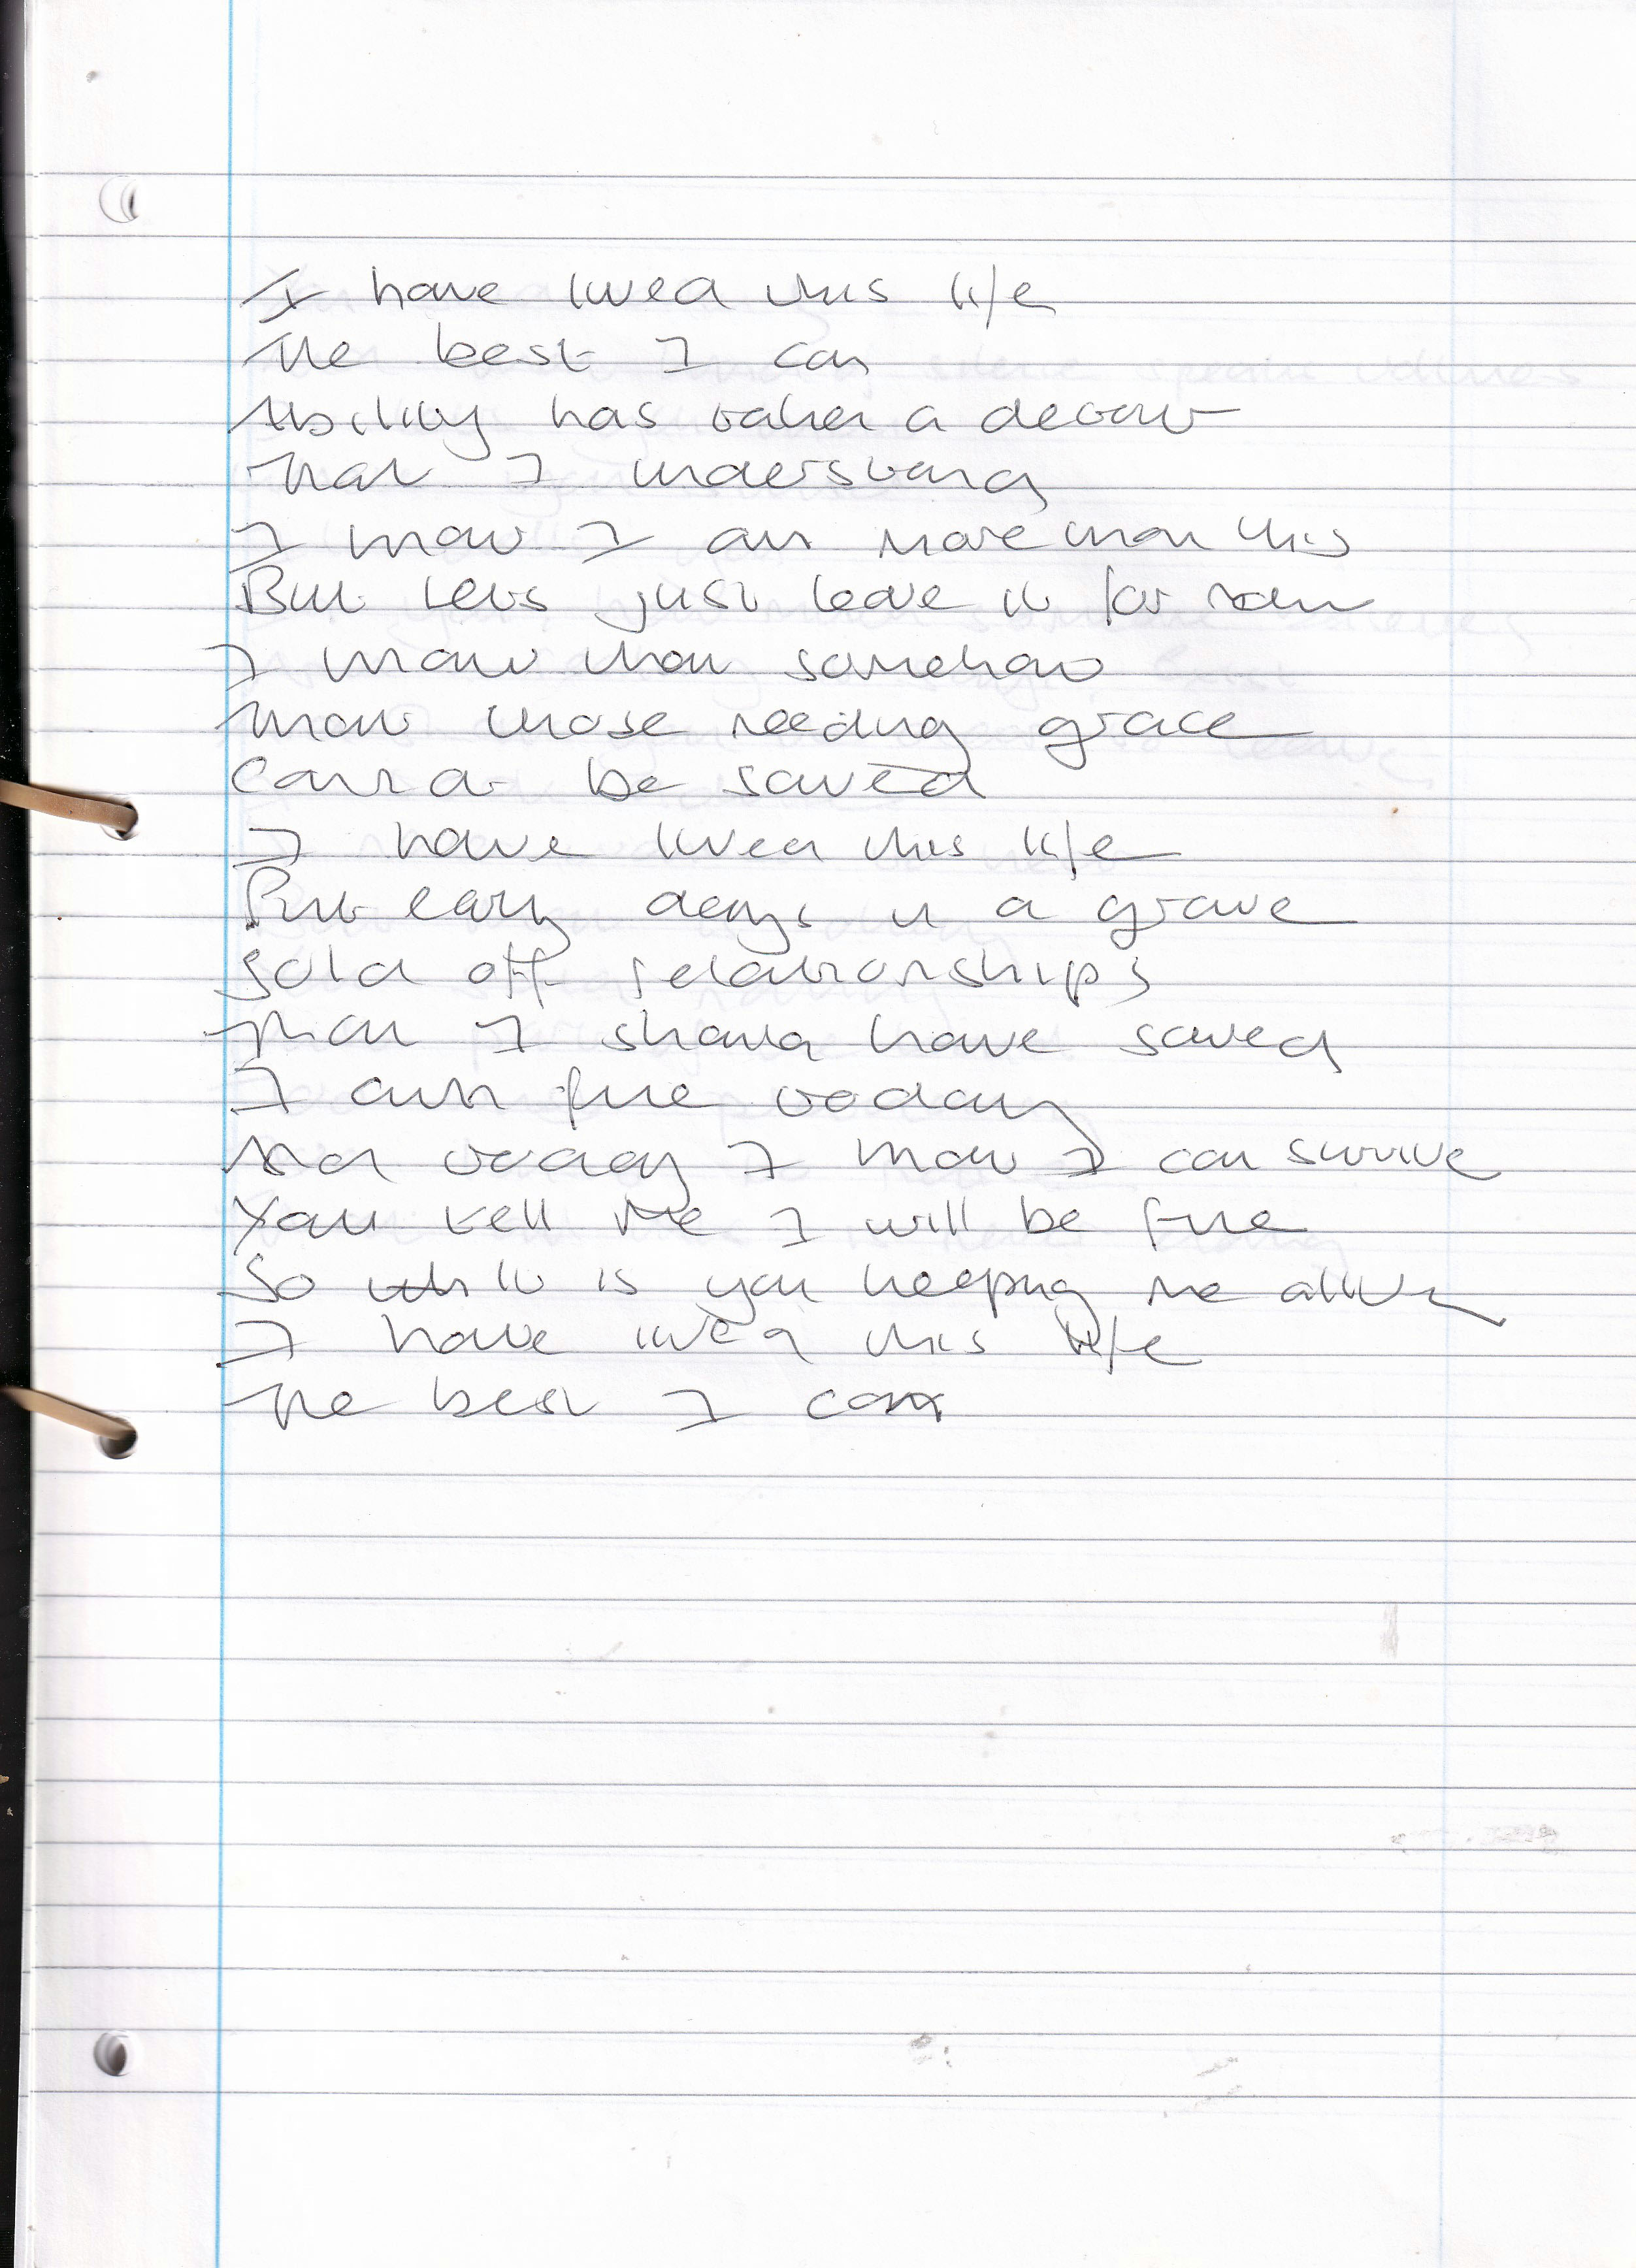 I have lived this life
The best I can
Ability has taken a detour
That I understand
I know I am more than this
But lets just leave it for now
I know that somehow
know those needing grace
Cannot be saved
I have lived this life
Put early days in a grave
Sold off relationships
That I should have saved
I am fine today
And today I know I can survive
You tell me I will be fine
So it is you keeping me alive
I have lived this life
The best I can